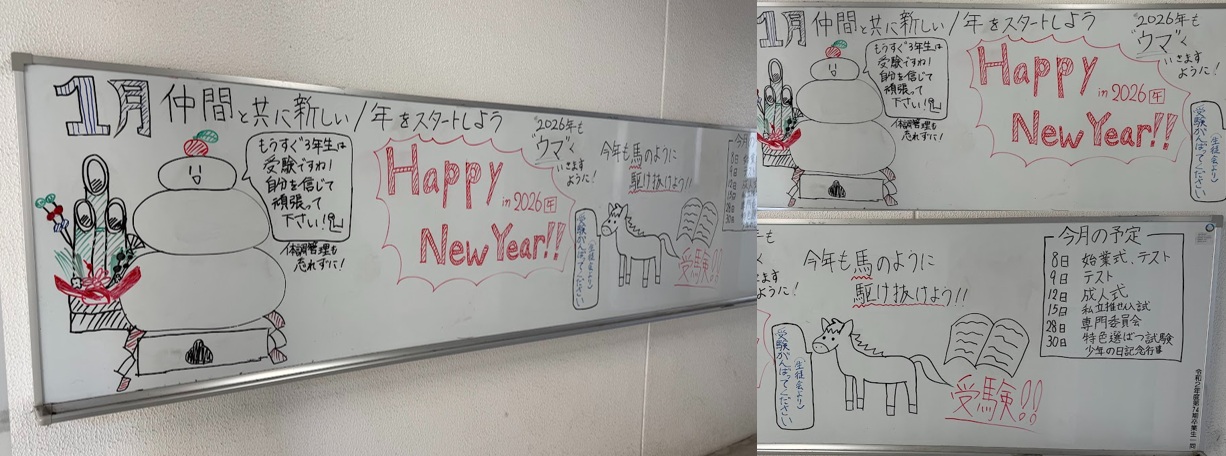 1月 仲間と共に新しい1年をスタートしよう
もうすぐ3年生は
受験ですね!
自分を信じて
頑張って
下さい!
体調管理も
忘れずに!
Happy
in 2026 午
New Year!!
"2026年も
"ウマ"く
いきます
ように!
受験がんばってください
(生徒会より)
今年も馬のように
駆け抜けよう!!
受験!!
今月の
8日
9日
12日
15日
28日
30日
1月 仲間と共に新しい1年をスタートしよう
もうすぐ3年生は
受験ですね!
自分を信じて
頑張って
下さい!
体調管理も
忘れずに!
Happy
in 2026 午
New Year!!
"2026年も
"ウマ"く
いきます
ように!
受験がんばってください
(生徒会より)
年も
ように!
今年も馬のように
駆け抜けよう!!
受験がんばってください
(生徒会より)
受験!!
今月の予定
8日 始業式、テスト
9日 テスト
12日 成人式
15日 私立推せん入試
28日 専門委員会
30日 特色選ばつ試験
少年の日記念行事
令和2年度第74期卒業生一同